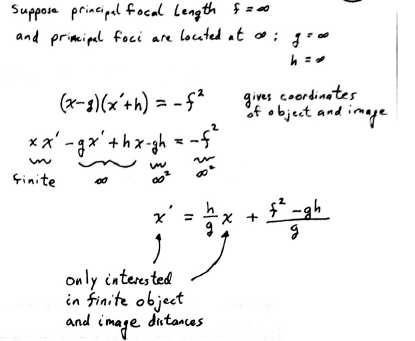 Suppose principal focal Length f = ∞
and principal foci are located at ∞ : g = ∞
h = ∞
(x-g)(x'+h) = -f²
gives coordinates
of object and image
xx' - gx' + hx - gh = -f²
finite ∞ ∞² ∞²
x' = h/g x + (f² - gh)/g
only interested
in finite object
and image distances